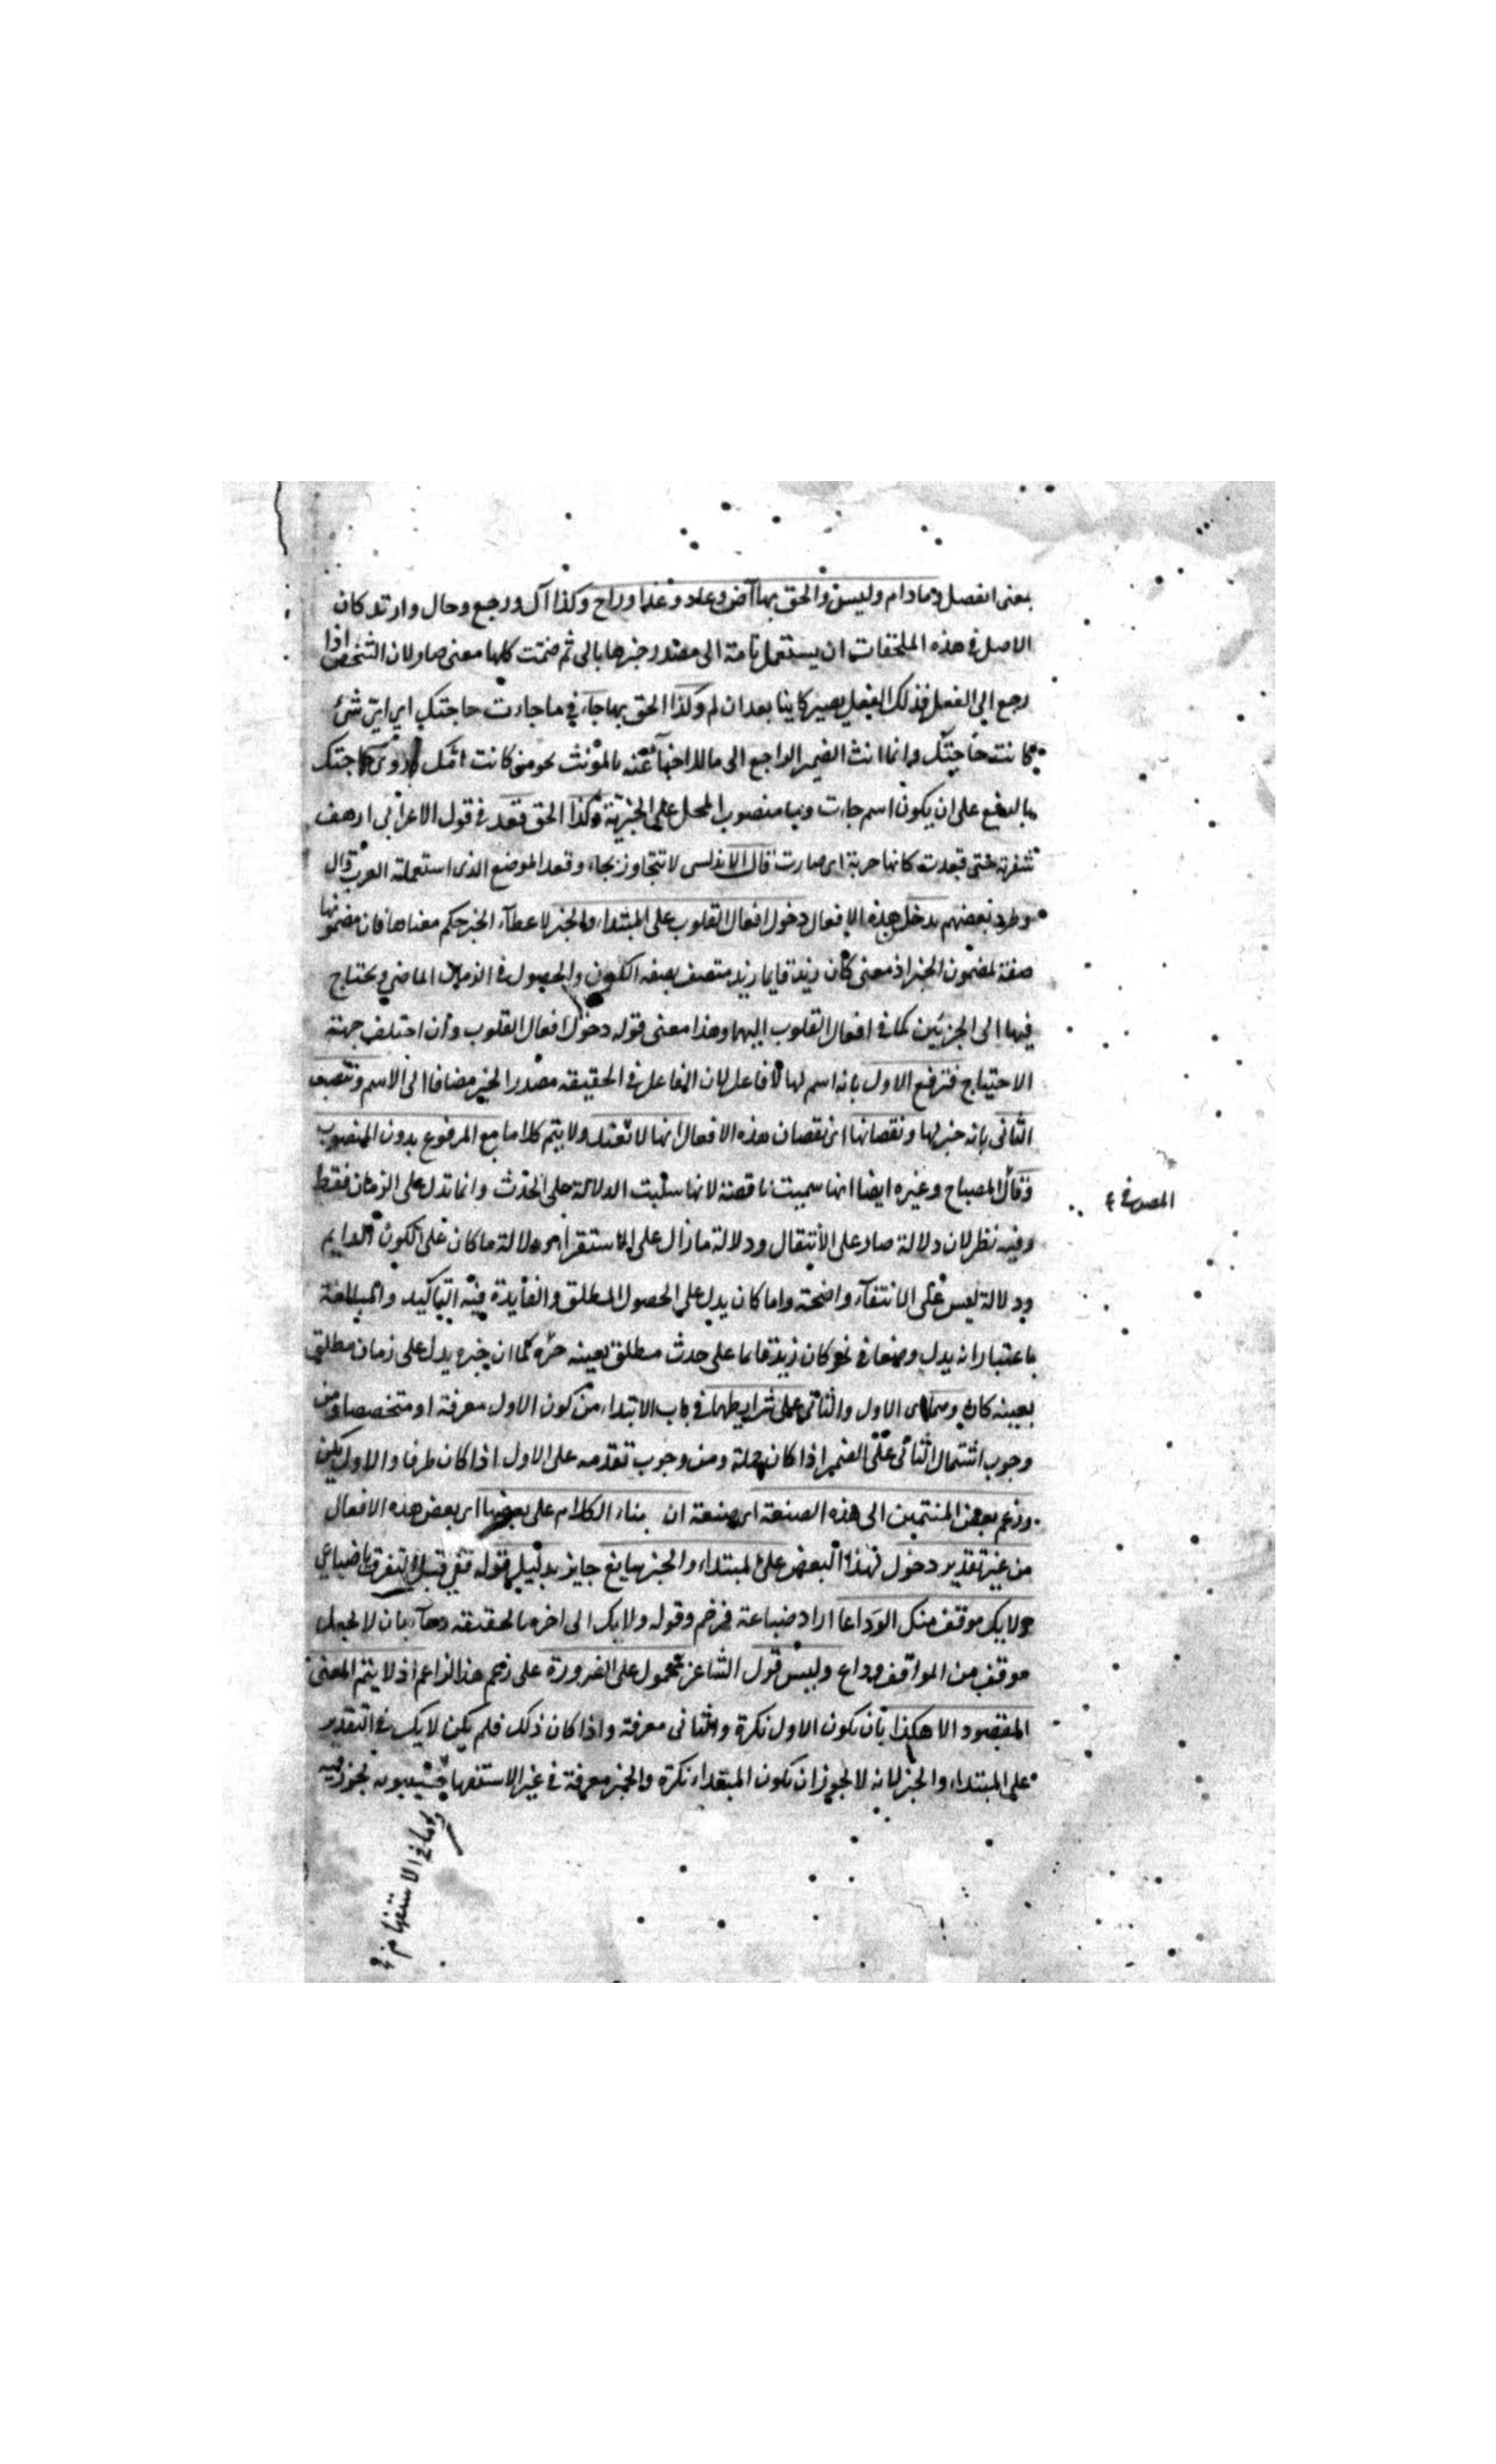 بمعنى انفصل ومادام وليس والحق بها آض وعاد وغدا وراح وكذا آل ورجع وحال وارتد كان
الاصل في هذه الملحقات ان يستعمل تامة الى مصدر خبرها بالى ثم ضمنت كلها معنى صار لان الشخص اذا
رجع الى الفعل فذلك الفعل يصير كاينا بعد ان لم وكذا الحق بها جاء في ما جاءت حاجتك اي اية شئ
كانت حاجتك وانما انث الضمير الراجع الى ما للاخبار عنه بالمؤنث نحو من كانت امك وروى حاجتك
بالرفع على ان يكون اسم جاءت وما منصوب المحل على الخبرية وكذا الحق قعد في قول الاعرابي ارهف
شفرته حتى قعدت كانها حربة اي صارت قال الاندلسي لا تتجاوز بجاء وقعد الموضع الذي استعملته العرب قال
وطرد بعضهم يدخل هذه الافعال دخول افعال القلوب على المبتداء والخبر لاعطاء الخبر حكم معناها فان مضمونها
صفة لمضمون الخبر اذ معنى كان زيد قايما زيد متصف بصفه الكون والحصول في الزمان الماضي ويحتاج
فيها الى الجزئين كما في افعال القلوب اليهما وهذا معنى قوله دخول افعال القلوب وان اختلف جهته
الاحتياج فترفع الاول بانه اسم لها لا فاعل لان الفاعل في الحقيقه مصدر الخبر مضافا الى الاسم وتنصب
الثاني بانه خبر لها ونقصانها اي نقصان هذه الافعال انها لا تفيد ولا يتم كلاما مع المرفوع بدون المنصوب
وقال المصباح وغيره ايضا انها سميت ناقصة لانها سلبت الدلالة على الحدث وانما تدل على الزمان فقط
وفيه نظر لان دلالة صار على الانتقال ودلالة مازال على الاستقرار ودلالة ما كان على الكون الدايم
ودلالة ليس على الانتفاء واضحة واما كان يدل على الحصول المطلق والفايدة فيه التاكيد والمبالغة
باعتبار انه يدل وضعا في نحو كان زيد قايما على حدث مطلق بعينه خبره كما ان خبره يدل على زمان مطلق
بعينه كان وهما اي الاول والثاني على شرايطهما في باب الابتداء من كون الاول معرفة او متخصصا ومن
وجوب اشتمال الثاني على الضمير اذا كان جملة ومن وجوب تقدمه على الاول اذا كان ظرفا والاول نكرة
وزعم بعض المنتمين الى هذه الصنعة اي صنعة ان بناء الكلام على بعضها اي بعض هذه الافعال
من غير تقدير دخول هذا البعض على المبتداء والخبر سايغ جايز بدليل قوله قفي قبل التفرق يا ضباعي
ولا يك موقف منك الوداعا اراد ضباعة فرخم وقوله ولا يك الى اخره بالحقيقه دعاء بان لا يجعل
موقف من المواقف وداع وليس قول الشاعر محمول على الضرورة على زعم هذا الزاعم اذ لا يتم المعنى
المقصود الا هكذا بان تكون الاول نكرة والثاني معرفة واذا كان ذلك فلم يكن لا يك في التقدير
على المبتداء والخبر لانه لا يجوز ان تكون المبتداء نكرة والخبر معرفة في غير الاستفهام سيبويه يجوز فيه
الاستفهام